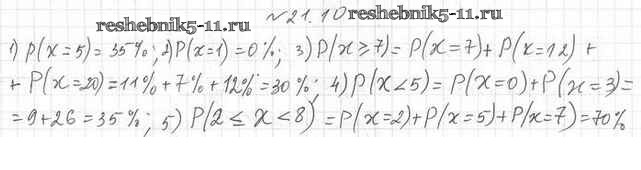 №21.10
reshebnik5-11.ru reshebnik5-11.ru
1) P(x=5)=35%; 2) P(x=1)=0%; 3) P(x≥7)=P(x=7)+P(x=12)+
+P(x=20)=11%+7%+12%=30%; 4) P(x<5)=P(x=0)+P(x=3)=
=9+26=35%; 5) P(2≤x<8)=P(x=2)+P(x=5)+P(x=7)=70%